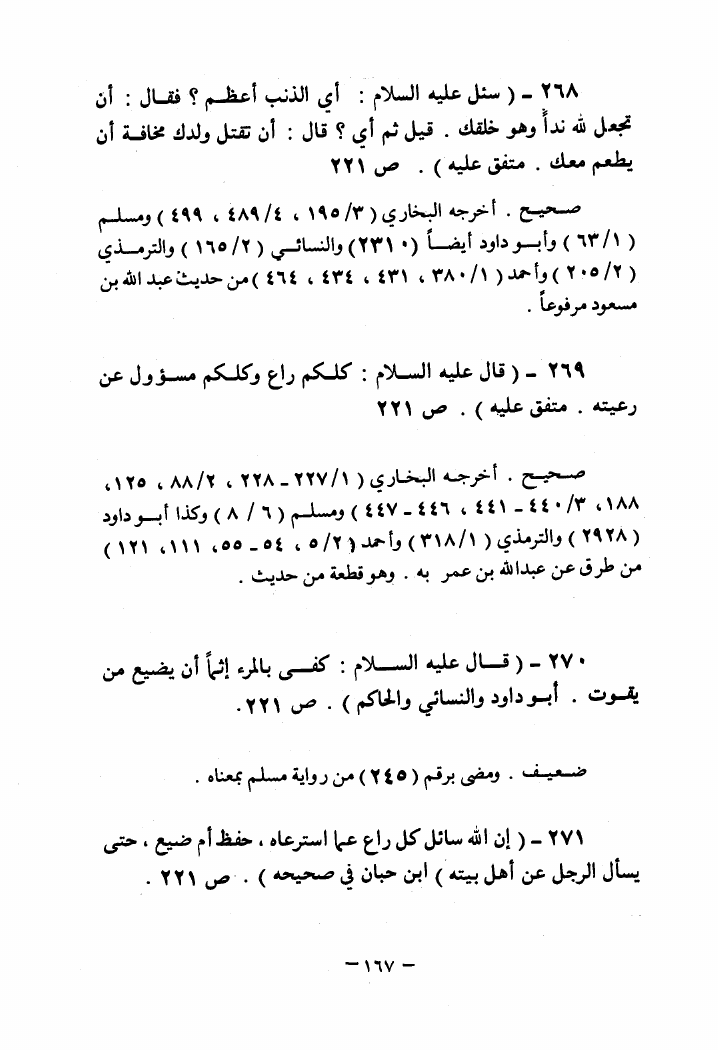 ٢٦٨ - ( سئل عليه السلام : أي الذنب أعظم ؟ فقال : أن
تجعل لله نداً وهو خلقك . قيل ثم أي ؟ قال : أن تقتل ولدك مخافة أن
يطعم معك . متفق عليه ) . ص ٢٢١
صحيح . أخرجه البخاري ( ٣/ ١٩٥ ، ٤/ ٤٨٩ ، ٤٩٩ ) ومسلم
( ١/ ٦٣ ) وأبو داود أيضاً ( ٢٣١٠ ) والنسائي ( ٢/ ١٦٥ ) والترمذي
( ٢/ ٢٠٥ ) وأحمد ( ١/ ٣٨٠ ، ٤٣١ ، ٤٣٤ ، ٤٦٤ ) من حديث عبد الله بن
مسعود مرفوعاً .
٢٦٩ - ( قال عليه السلام : كلكم راع وكلكم مسؤول عن
رعيته . متفق عليه ) . ص ٢٢١
صحيح . أخرجه البخاري ( ١/ ٢٢٧ - ٢٢٨ ، ٢/ ٨٨ ، ١٢٥،
١٨٨، ٣/ ٤٤٠ - ٤٤١ ، ٤٤٦ - ٤٤٧ ) ومسلم ( ٦ / ٨ ) وكذا أبو داود
( ٢٩٢٨ ) والترمذي ( ١/ ٣١٨ ) وأحمد ( ٢/ ٥ ، ٥٤ - ٥٥، ١١١، ١٢١ )
من طرق عن عبدالله بن عمر به . وهو قطعة من حديث .
٢٧٠ - ( قال عليه السلام : كفى بالمرء إثماً أن يضيع من
يقوت . أبو داود والنسائي والحاكم ) . ص ٢٢١.
ضعيف . ومضى برقم ( ٢٤٥ ) من رواية مسلم بمعناه .
٢٧١ - ( إن الله سائل كل راع عما استرعاه ، حفظ أم ضيع ، حتى
يسأل الرجل عن أهل بيته ) ابن حبان في صحيحه ) . ص ٢٢١ .
- ١٦٧ -